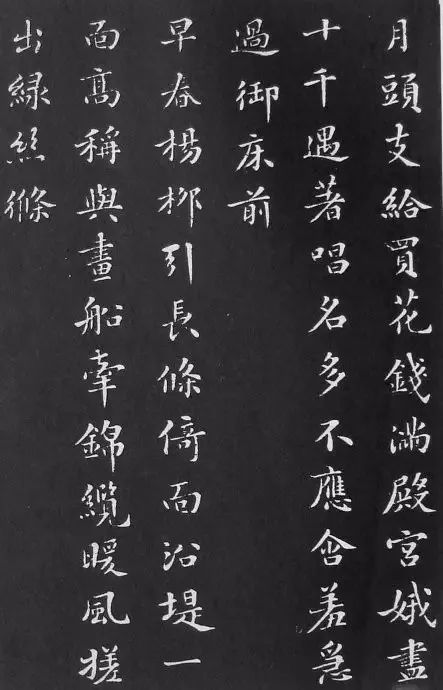 月頭支給買花錢滿殿宮娥盡
十千遇著唱名多不應含羞急
過御床前
早春楊柳引長條倚面沿堤一
面高稱與畫船牽錦纜暖風搓
出綠絲絛